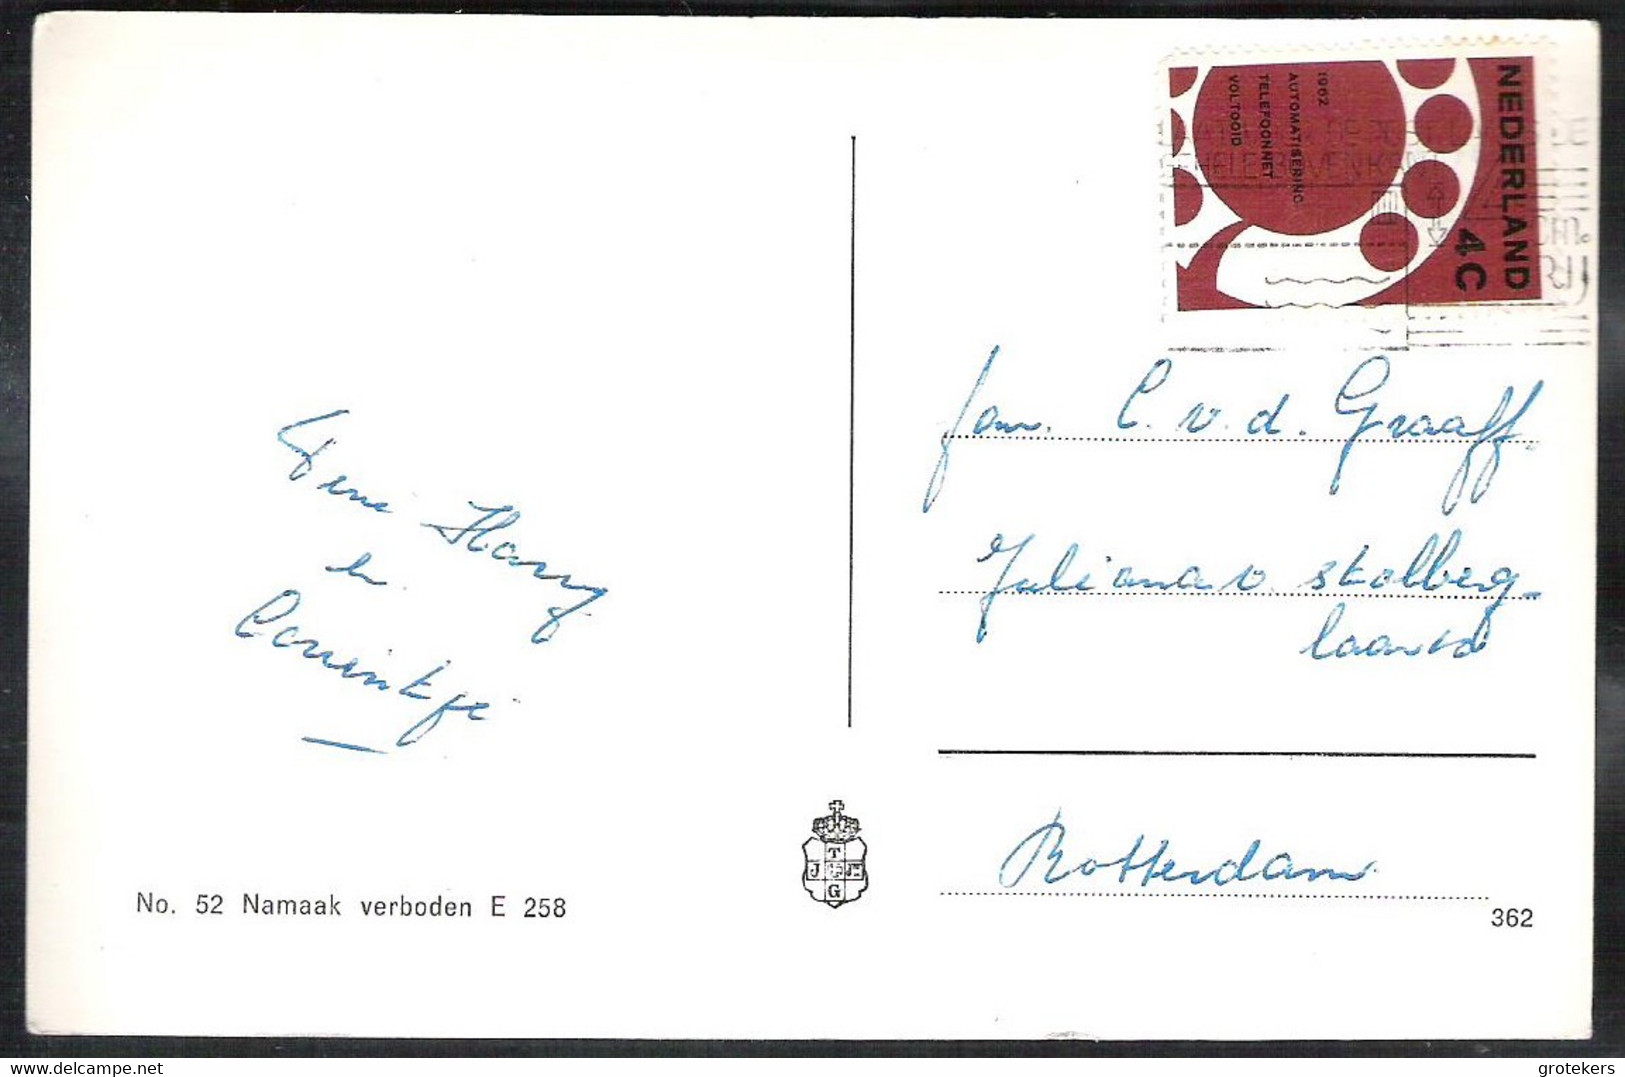 NEDERLAND
4C
1962
AUTOMATISERING
TELEFOONNET
VOLTOOID
Fam. C. v. d. Graaff.
Juliana v. Stolberg-
laan
Rotterdam
Harry
en
Corrintje
No. 52 Namaak verboden E 258
T
J
G
362
grotekers